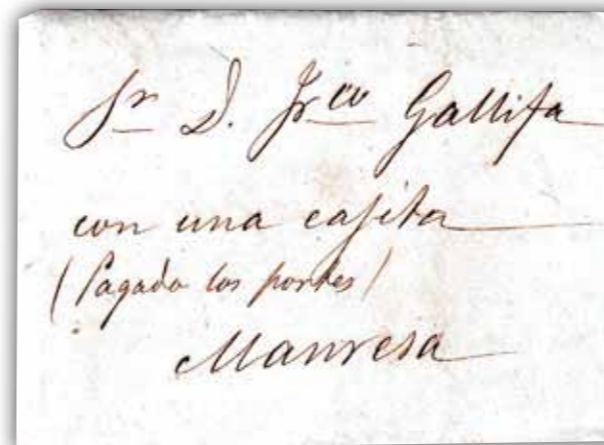 Sr D. Frco Gallifa
con una cajita
(Pagado los portes)
Manresa